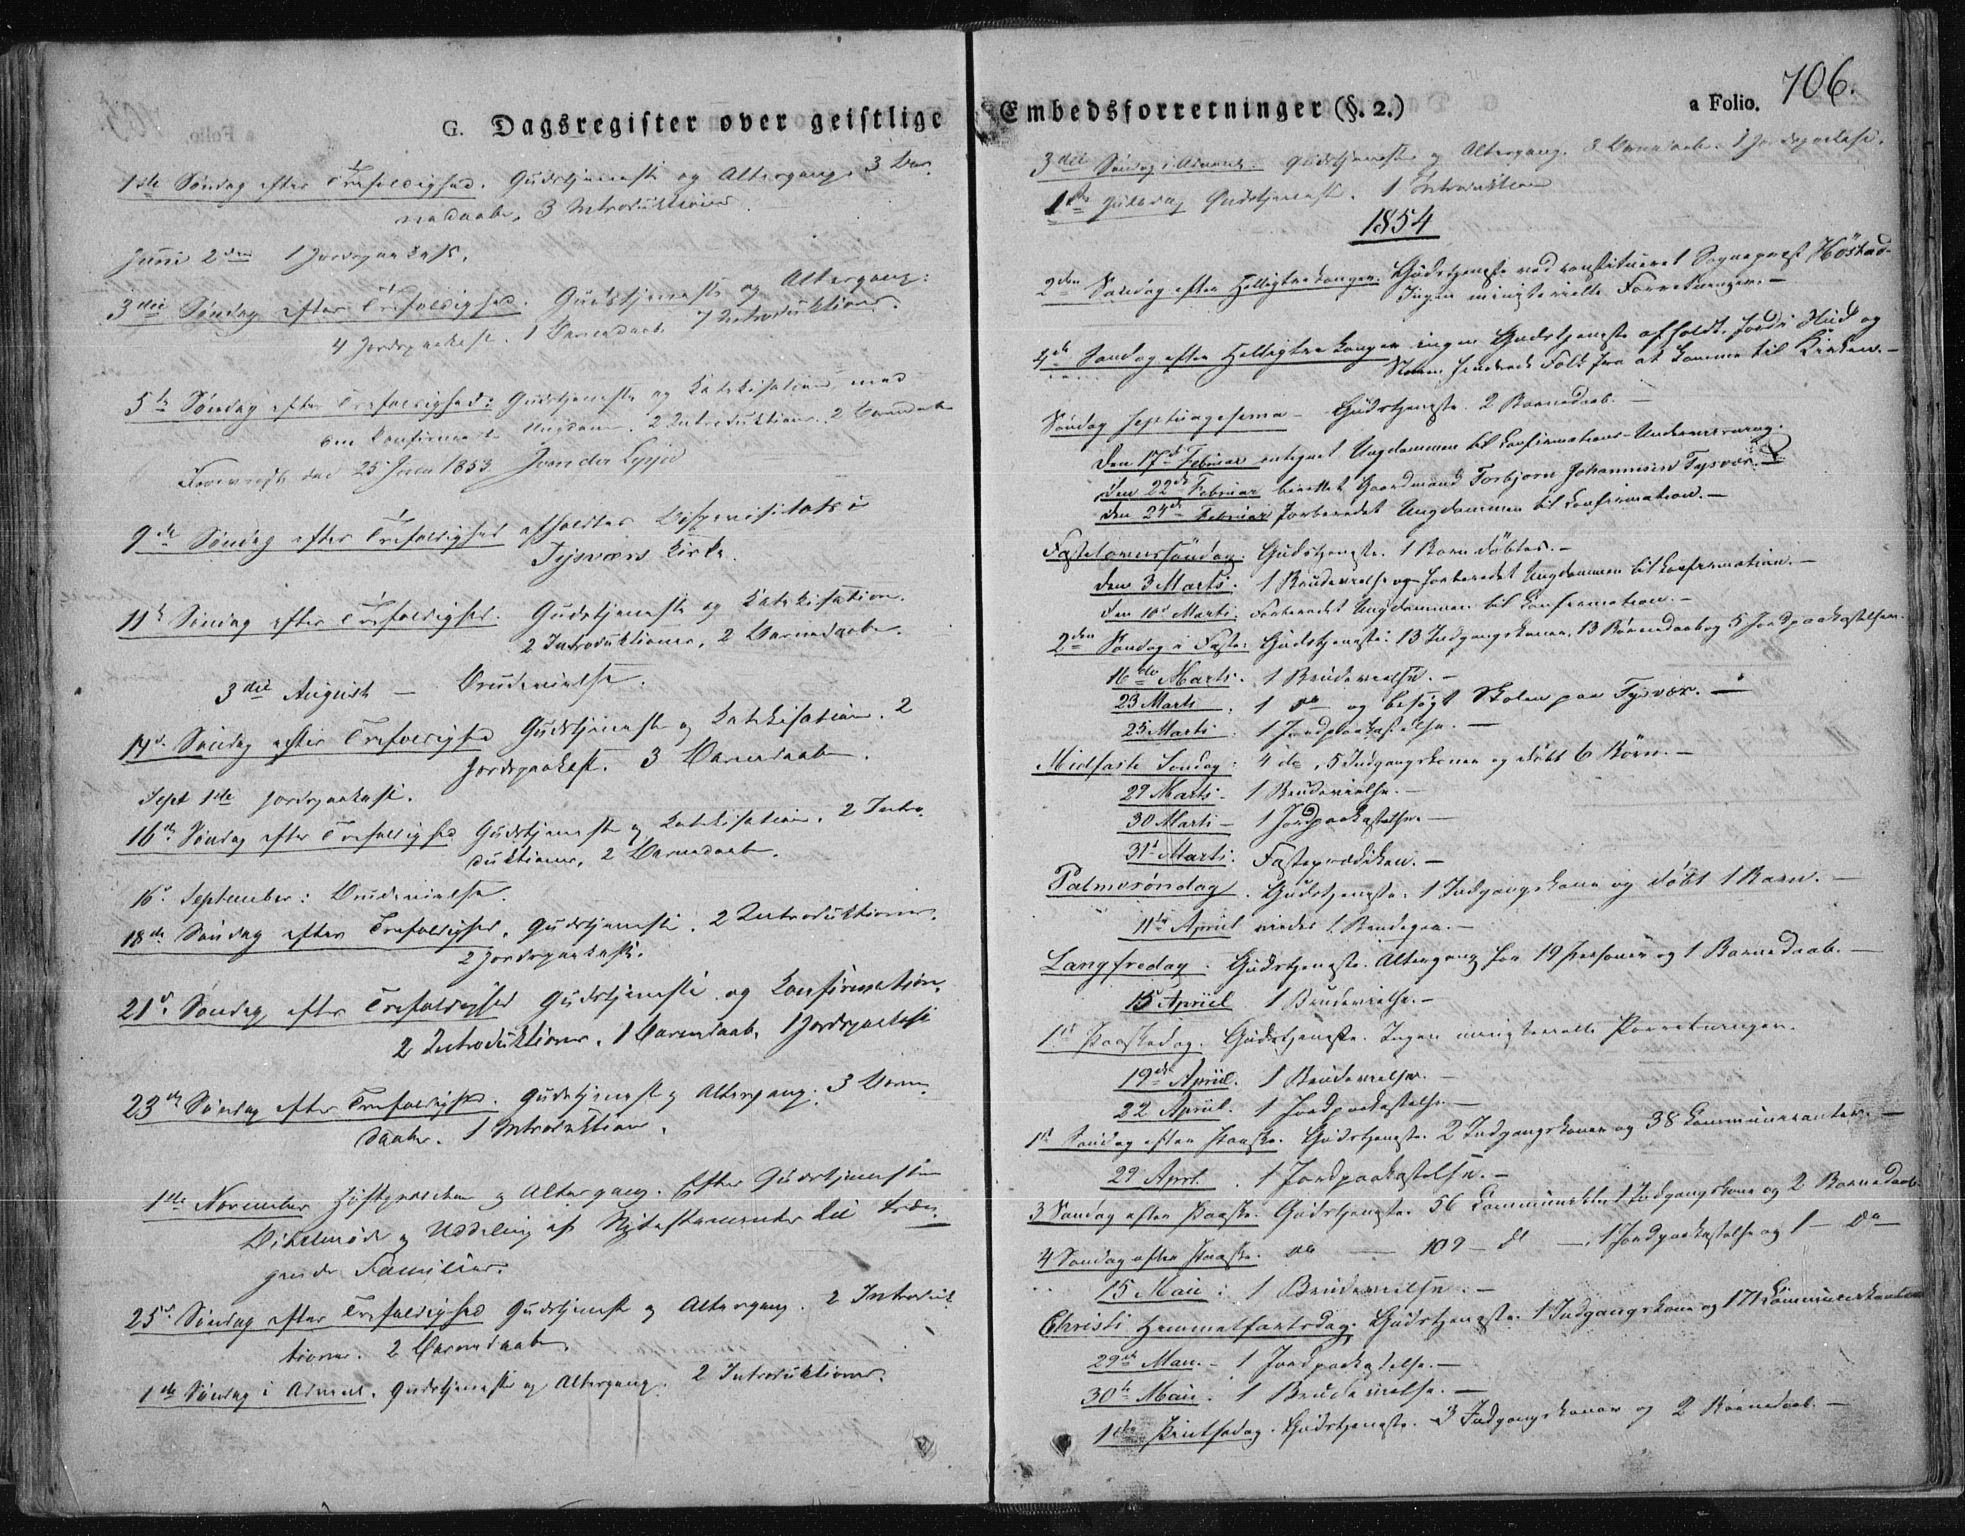 G. Dagsregister over geistlige
1ste Søndag efter Trefoldighed. Gudstjeneste og Altergang. 3 Bar-
nedaabe, 3 Introduktioner.
Juni 2den 1 Jordpaakast.
3die Søndag efter Trefoldighed. Gudstjeneste og Altergang.
4 Jordpaakast. 1 Barnedaab 7 Introduktioner.
5te Søndag efter Trefoldighed: Gudstjeneste og Katekisation med
den konfirmerte Ungdom. 2 Introduktioner. 2 Barnedaab
25 Juni 1853
9de Søndag efter Trefoldighed afholdtes Bispevisitats i
Tysvær Kirke.
11te Søndag efter Trefoldighed. Gudstjeneste og Katekisation.
2 Introduktioner, 2 Barnedaabe.
3die August — Brudevielse.
14d. Søndag efter Trefoldighed Gudstjeneste og Katekisation. 2
Jordpaakast. 3 Barnedaab.
Sept 1ste Jordpaakast.
16de Søndag efter Trefoldighed Gudstjeneste og Katekisation. 2 Intro-
duktioner, 2 Barnedaab.
16d September: Brudevielse.
18de Søndag efter Trefoldighed. Gudstjeneste. 2 Introduktioner.
2 Jordpaakast.
21d. Søndag efter Trefoldighed Gudstjeneste og Konfirmation.
2 Introduktioner. 1 Barnedaab, 1 Jordpaakast
23de Søndag efter Trefoldighed. Gudstjeneste og Altergang. 3 Barne-
daabe. 1 Introduktion.
1ste November Høstprædiken og Altergang. Efter Gudstjenesten
Bibelmøde og Uddeling af Nytestamenter til træn-
gende Familier.
25d Søndag efter Trefoldighed Gudstjeneste og Altergang. 2 Introduk-
tioner. 2 Barnedaab.
1ste Søndag i Advent. Gudstjeneste og Altergang. 2 Introduktioner.
Embedsforretninger (§. 2.)
a Folio. 706.
3die Søndag i Advent. Gudstjeneste og Altergang. Barnedaab. 1 Jordpaakast.
1ste Juledag Gudstjeneste. 1 Introduktion
1854
2den Søndag efter Helligtrekonger. Gudstjeneste ved constitueret Sogneprest Höstad-
Ingen ministerielle Forretninger. —
4de Søndag efter Helligtrekonger ingen Gudstjeneste afholdt, fordi Vind og
Storm hindrede Folk fra at komme til Kirken. —
Søndag Septuagesima — Gudstjeneste. 2 Barnedaab. —
den 17d Februar antegnet Ungdommen til Confirmations-Underviisning.
den 22de Februar Gaardmand Torbjørn Johannesen Tysvær.
den 24de Februar forberedet Ungdommen til Confirmation. —
Fastelavnssöndag: Gudstjeneste. 1 Barn döbtes. —
den 3 Marts: 1 Brudevielse og forberedet Ungdommen til Confirmation. —
den 10d Marts: Forberedet Ungdommen til Confirmation. —
2den Søndag i Faste: Gudstjeneste: 13 Indgangskoner, 13 Børnedaab og 5 Jordpaakastelser.
16de Marts. 1 Brudevielse. —
23 Marts. 1 do og besögt Skolen paa Tysvær. —
25 Marts: 1 Jordpaakastelse. —
Midfaste Søndag: 4 do, 5 Indgangskoner og döbt 6 Börn. —
29 Marts. 1 Brudevielse. —
30 Marts — 1 Jordpaakastelse. —
31t Marts. Fasteprædiken. —
Palmesøndag. Gudstjeneste. 1 Indgangskone og döbt 1 Barn. —
11te April viedes 1 Brudepar. —
Langfredag. Gudstjeneste. Altergang for 19 personer og 1 Barnedaab. —
15 April 1 Brudevielse. —
1st Paaskedag. Gudstjeneste. Ingen ministerielle Forretninger.
19de April. 1 Brudevielse. —
22 April. 1 Jordpaakastelse. —
1st Søndag efter Paaske. Gudstjeneste. 2 Indgangskoner og 38 Communicanter. —
29 April. 1 Jordpaakastelse. —
3 Søndag efter Paaske. Gudstjeneste. 56 1 Indgangskone og 2 Barnedaab.
4 Søndag efter Paaske. do — 109 — d — 1 Jordpaakastelse og 1 — do
15 Mai: 1 Brudevielse. —
Christi Himmelfartsdag. Gudstjeneste. 1 Indgangskone og 171 Communicanter
29de Mai. — 1 Jordpaakastelse. —
30te Mai. 1 Brudevielse. —
1ste Pintsedag. Gudstjeneste. 3 Indgangskoner og 2 Børnedaab. —